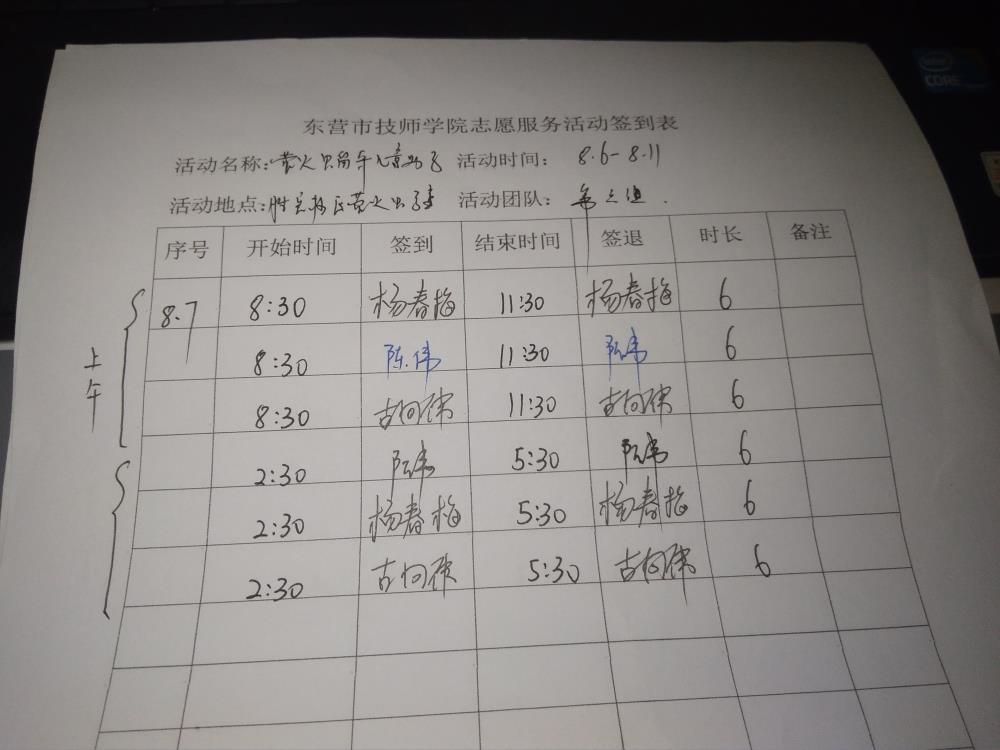 intel
CORE
东营市技师学院志愿服务活动签到表
活动名称:萤火虫留守儿童 活动时间: 8.6-8.11
活动地点:胜 萤火虫 活动团队: 第 组.
序号 开始时间 签到 结束时间 签退 时长 备注
8.7 8:30 杨春梅 11:30 杨春梅 6
上午
8:30 陈伟 11:30 陈伟 6
8:30 古向伟 11:30 古向伟 6
2:30 陈伟 5:30 陈伟 6
2:30 杨春梅 5:30 杨春梅 6
2:30 古向伟 5:30 古向伟 6